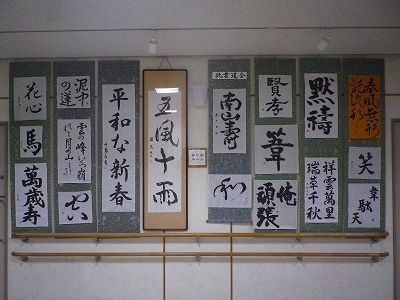 花心
馬
萬歳寿
泥中
の蓮
雲の峰いくつ崩
れて月の山
平和な新春
五風十雨
北書道会
南山寿
和
賢孝
葦
俺
頑張
黙祷
祥雲萬里
瑞草千秋
春風無形
笑
韋駄天